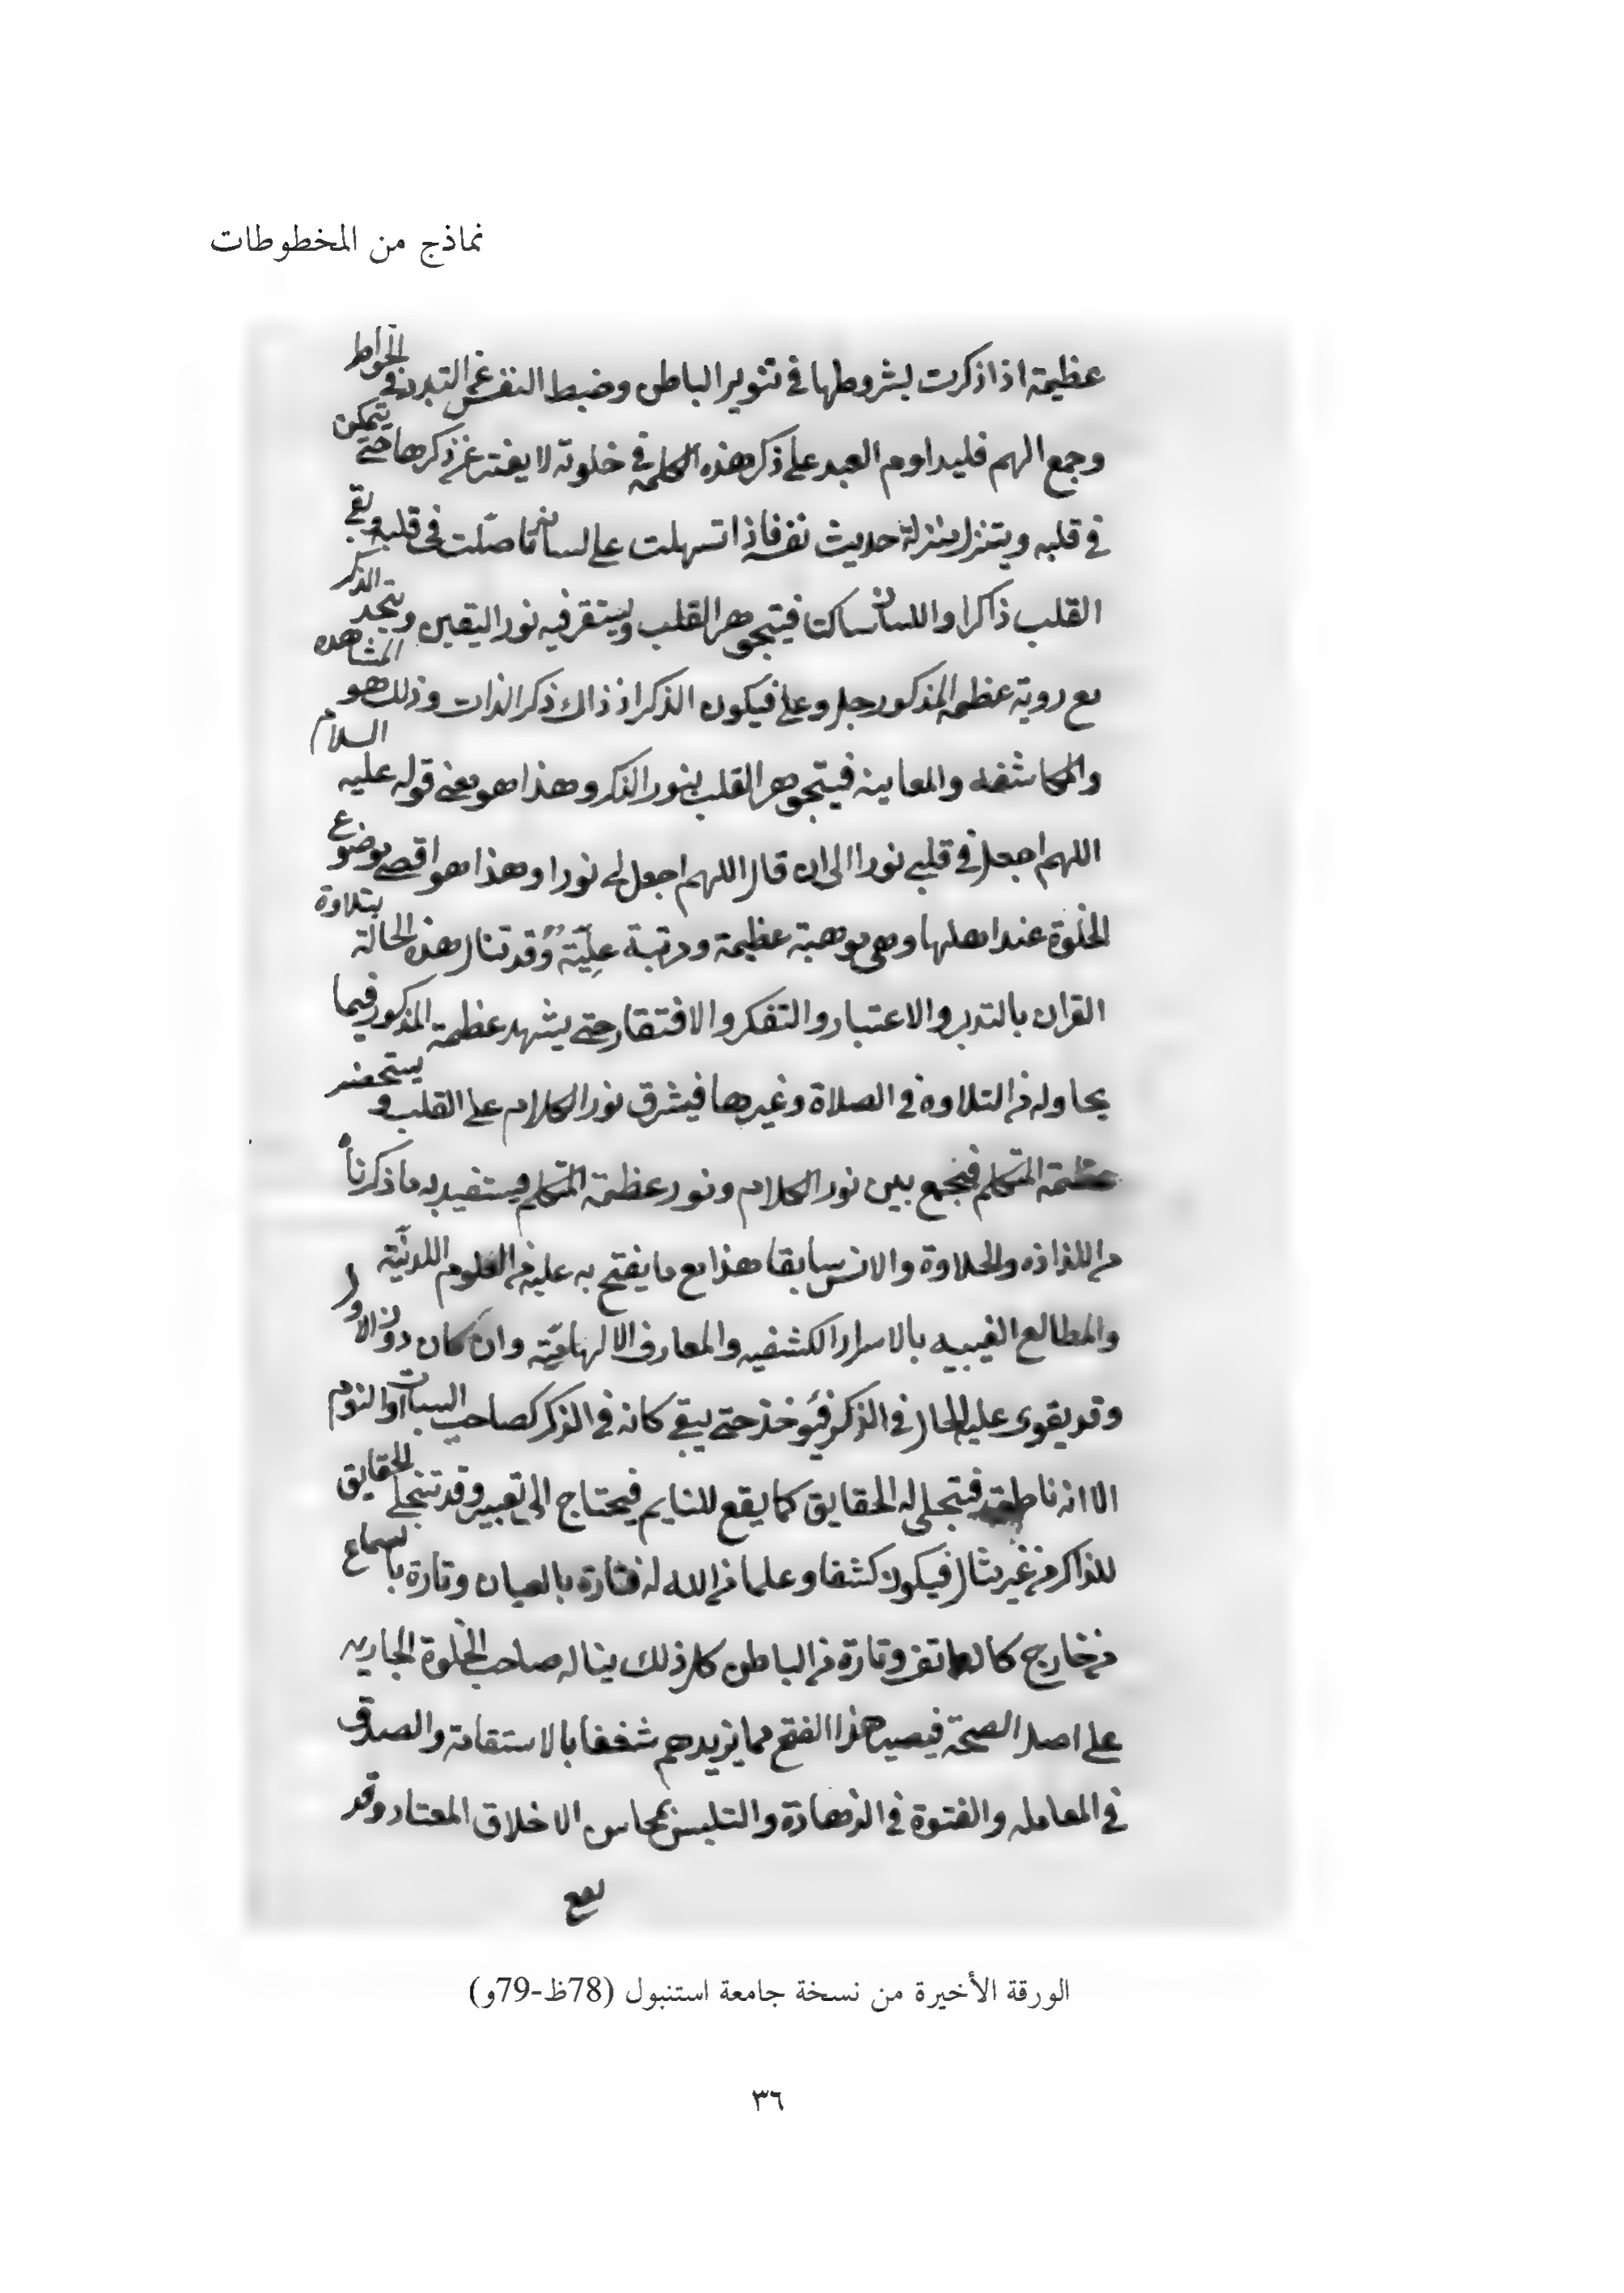 نماذج من المخطوطات
عظيمة اذا ذكرت بشروطها في تنوير الباطن وضبط النفس عن التبدد في الخواطر
وجمع الهم فليداوم العبد على ذكر هذه الكلمة في خلوته لا يفتر عن ذكرها حتى يتمكن
في قلبه ويتنزل منزلة حديث نفسه فاذا تسهلت على لسانه تاصلت في قلبه وبقي
القلب ذاكرا واللسان ساكتا فيتجوهر القلب ويستقر فيه نور اليقين ويتحد الذكر
مع روية عظمة المذكور جل وعلا فيكون الذكر اذ ذاك ذكر الذات وذلك هو المشاهده
والمكاشفه والمعاينه فيتجوهر القلب بنور الذكر وهذا هو معنى قوله عليه السلام
اللهم اجعل في قلبي نورا الى ان قال اللهم اجعل لي نورا وهذا هو اقصى موضوع
الخلوة عند اهلها وهي موهبة عظيمة ورتبة عليّة وقد تنال هذه الحالة بتلاوة
القران بالتدبر والاعتبار والتفكر والافتقار حتى يشهد عظمة المذكور فيما
يحاوله من التلاوه في الصلاة وغيرها فيشرق نور الكلام على القلب و يستحضر
عظمة المتكلم فيجمع بين نور الكلام ونور عظمة المتكلم فيستفيد به ما ذكرناه
من اللذاذه والحلاوة والانس سابقا هذا مع ما يفتح به عليه من العلوم اللدنيّة
والمطالع الغيبيه بالاسرار الكشفيه والمعارف الالهاميّة وان كان دون الاول
وقد يقوى عليه الحال في الذكر فيؤخذ حتى يبقى كانه في الذكر كصاحب السبات او النوم
الا انه ناطق فتجلى له الحقايق كما يقع للنايم فيحتاج الى تعبير وقد تنجلي الحقايق
للذاكر من غير مثال فيكون كشفا وعلما من الله له فتارة بالعيان وتارة بالسماع
من خارج كالهاتف وتارة من الباطن كل ذلك يناله صاحب الخلوة الجاريه
على اصل الصحة فيصير هذا الفتح مما يزيدهم شغفا بالاستقامة والصدق
في المعامله والفتوة في الزهادة والتلبس بمحاسن الاخلاق المعتاد وقد
يقع
الورقة الأخيرة من نسخة جامعة استنبول (78ظ-79و)
٣٦